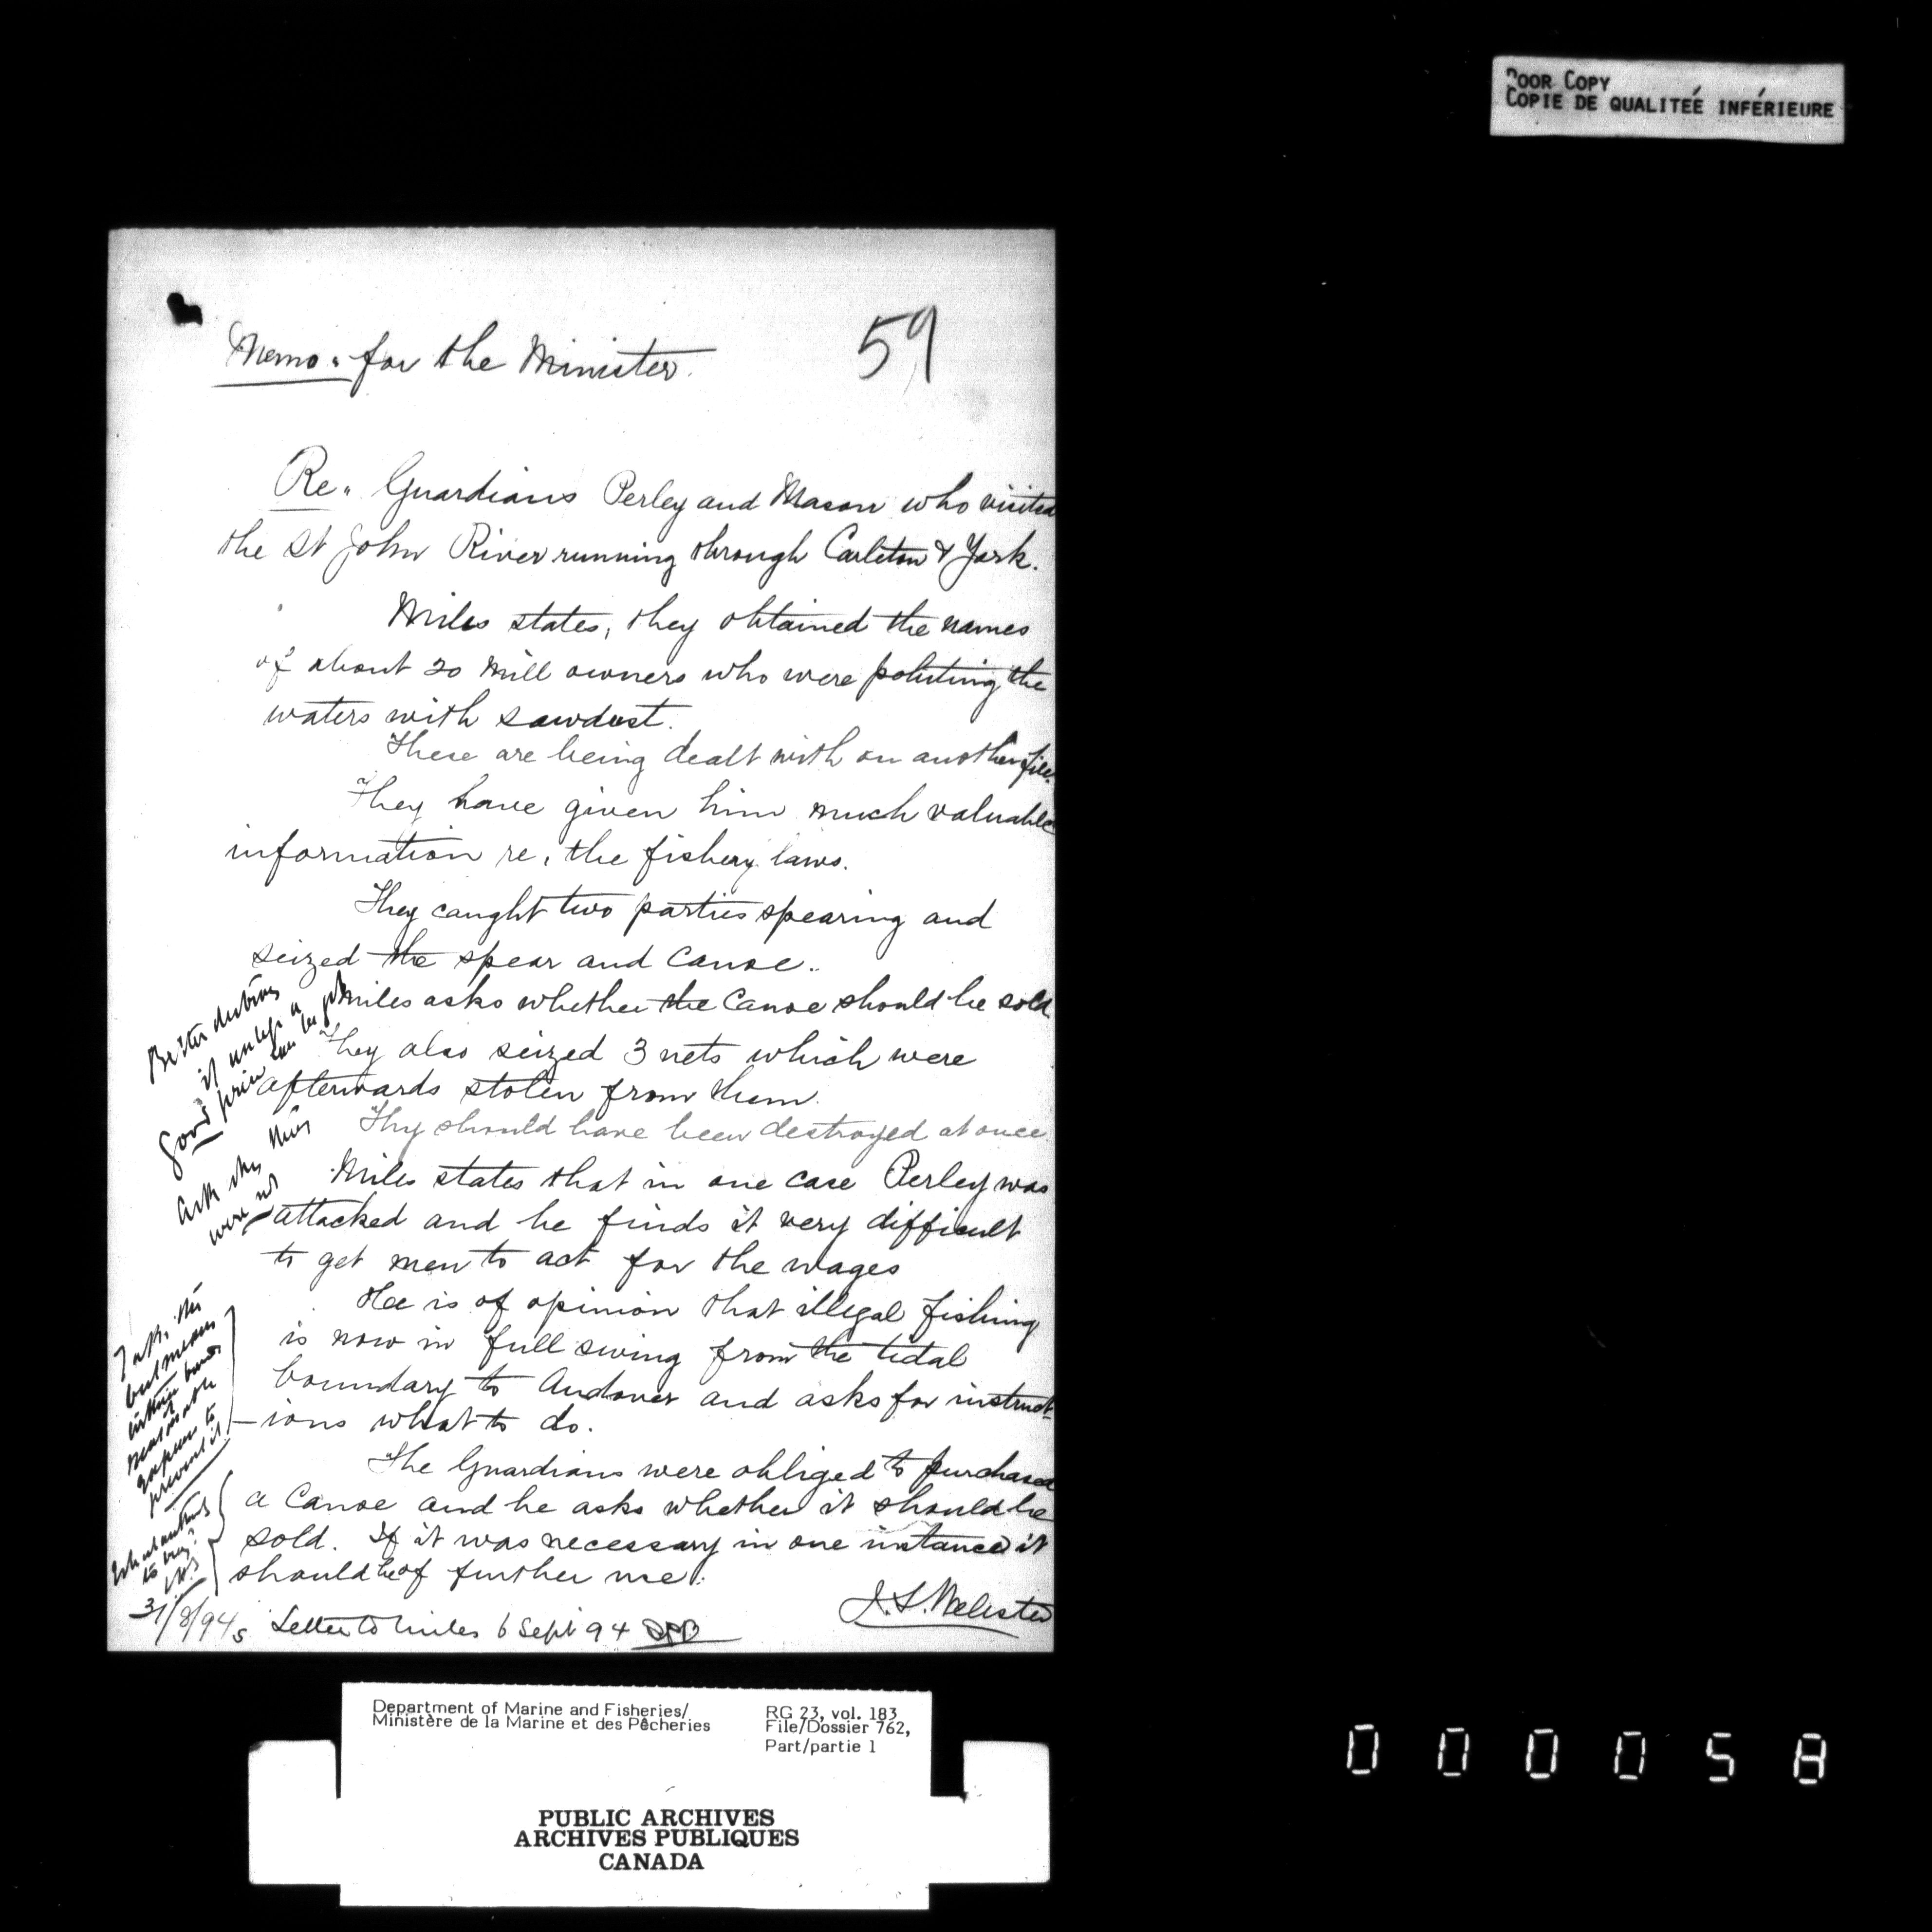 POOR COPY
COPIE DE QUALITEÉ INFÉRIEURE
59
Memo. for the Minister.
Re. Guardians Perley and Mason who visited
the St John River running through Carleton & York.
Miles states, they obtained the names
of about 20 Mill owners who were poluting the
waters with sawdust.
These are being dealt with on another file.
They have given him much valuable
information re, the fishery laws.
They caught two parties spearing and
seized the spear and Canoe.
Miles asks whether the Canoe should be sold
Better destroy
it unless a
good price can be got
They also seized 3 nets which were
afterwards stolen from them.
They should have been destroyed at once.
Ask why they
were not
Miles states that in one case Perley was
attacked and he finds it very difficult
to get men to act for the wages
He is of opinion that illegal fishing
is now in full swing from the tidal
boundary to Andover and asks for instruct-
-ions what to do.
but means
within
reasonable
expense to
prevent it
The Guardians were obliged to purchase
a Canoe and he asks whether it should be
sold. If it was necessary in one instance it
should be of further use.
What authority
to buy?
J.S. Webster
31/8/94
Letter to Miles 6 Sept 94
Department of Marine and Fisheries/
Ministère de la Marine et des Pêcheries
RG 23, vol. 183
File/Dossier 762,
Part/partie 1
PUBLIC ARCHIVES
ARCHIVES PUBLIQUES
CANADA
000058